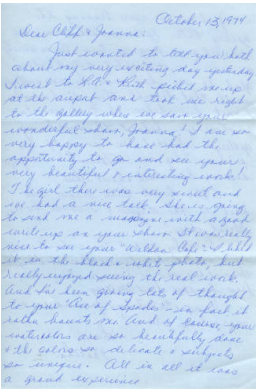 October 13, 1974
Dear Cliff & Joanna:
Just wanted to tell you both
about my very exciting day yesterday.
I went to & Ruth picked me up
at the airport and took me right
to the gallery where we saw your
wonderful show, Joanna! I am so
very happy to have had the
opportunity to go and see your
very beautiful & interesting works!
The girl there was very sweet and
we had a nice talk. She is going
to send me a magazine with a good
write up on your show. It was really
nice to see your "Cafe". I liked
it in the black & white photo, but
really enjoyed seeing the real work.
And I've been giving lots of thought
to your "Ace of Spades" - in fact it
rather haunts me. And of course your
watercolors are so beautifully done
& the colors so delicate & subjects
so unique. All in all it was
a grand experience